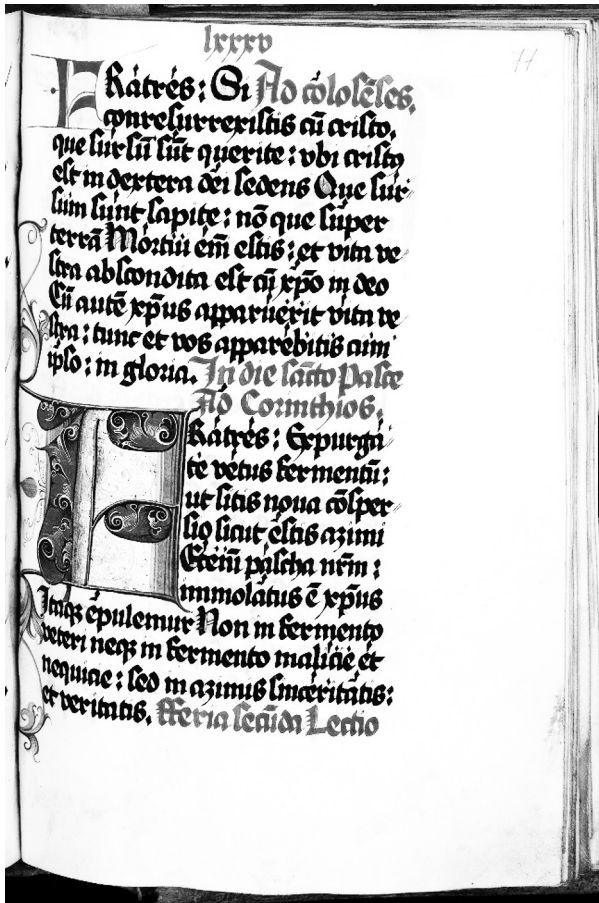 lxxxv
77
FRatres: Si Ad colosēses.
conresurrexistis cū cristo,
que sursū sūt querite: vbi cristꝯ
est in dextera dei sedens Que sur-
sum sunt sapite: nō que super
terrā Mortui em̄ estis: et vita ve-
stra abscondita est cū xp̄o in deo
Cū autē xp̄us apparuerit vita ve-
stra: tunc et vos apparebitis cum
ipso: in gloria. In die sancto Pasce
Ad Corinthios.
FRatres: Expurga-
te vetus fermentū:
ut sitis noua cōsper-
sio sicut estis azimi
Etenī pascha nr̄m:
immolatus ē xp̄us
Itaqꝫ epulemur Non in fermento
veteri neqꝫ in fermento malicie et
nequicie: sed in azimis sinceritatis:
et veritatis. fferia secūda Lectio